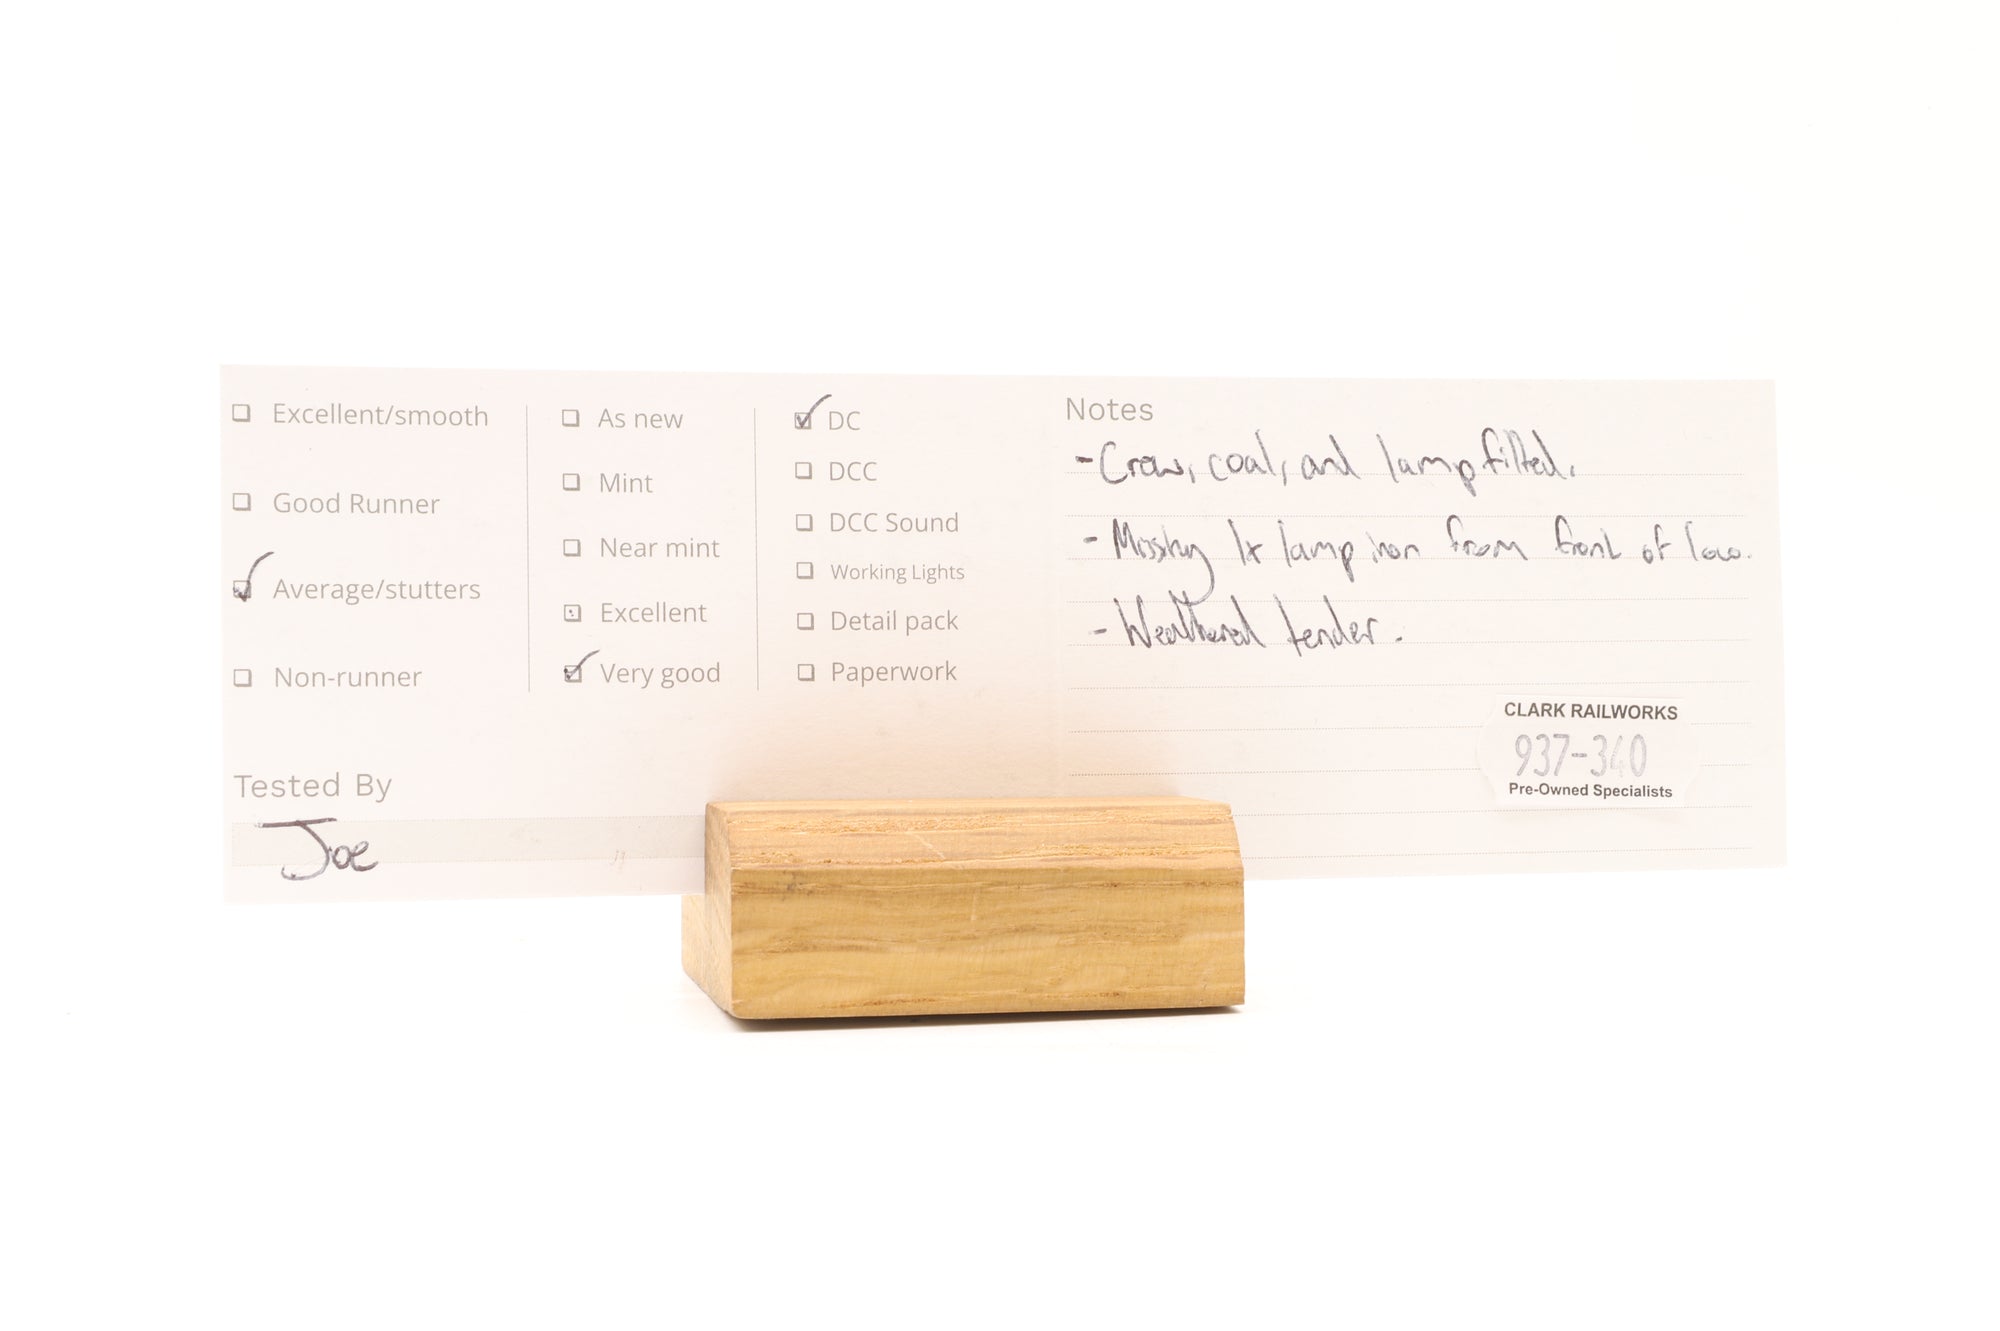 Excellent/smooth
Good Runner
Average/stutters
Non-runner
As new
Mint
Near mint
Excellent
Very good
DC
DCC
DCC Sound
Working Lights
Detail pack
Paperwork
Tested By
Joe
Notes
- Crew, coal, and lamp fitted.
- Missing 1x lamp iron from front of loco.
- Weathered tender.
CLARK RAILWORKS
937-340
Pre-Owned Specialists